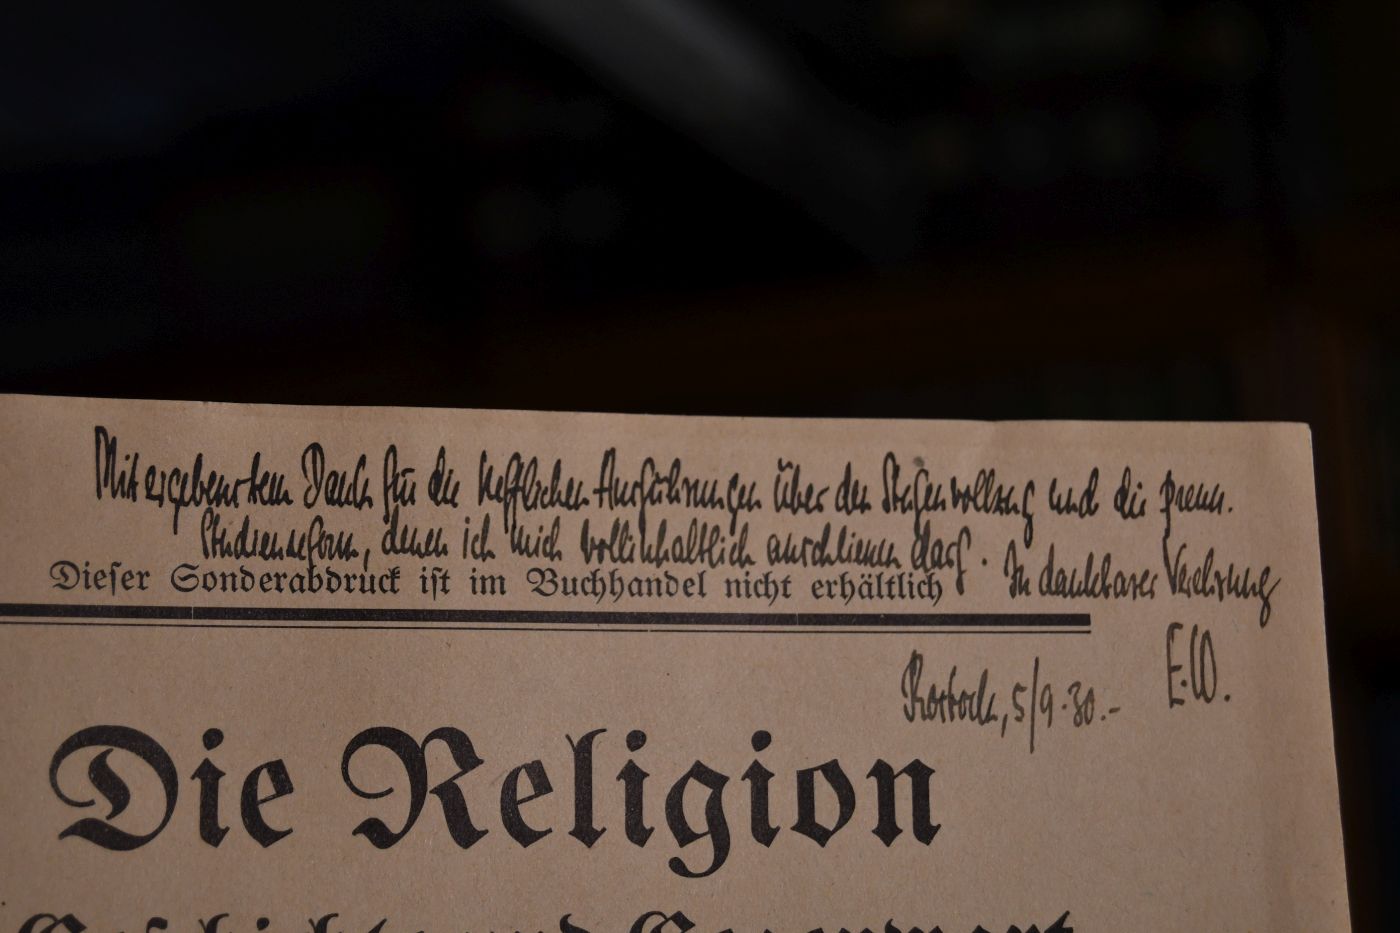 Mit ergebenstem Dank für die trefflichen Ausführungen über den Strafenvollzug und die preuss.
Studienreform, denen ich mich vollinhaltlich anschliessen darf. In dankbarer Verehrung
Dieser Sonderabdruck ist im Buchhandel nicht erhältlich
E.W.
Rostock, 5/9.30.-
Die Religion
Geschichte und Gegenwart